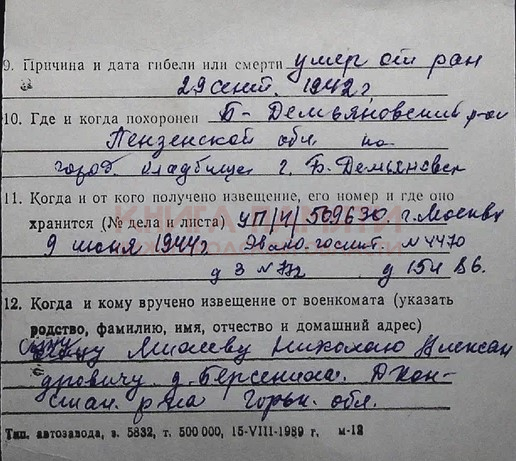 9. Причина и дата гибели или смерти умер от ран
29 сент. 1942 г
10. Где и когда похоронен Б-Демьяновский р-он
Пензенской обл. на
город. кладбище г. Б. Демьяновск
11. Когда и от кого получено извещение, его номер и где оно
хранится (№ дела и листа) УП/4/509630. г. Москва
9 июня 1944г Эвако. госпит. N 4470
д 3 N 772 д 154 86.
12. Когда и кому вручено извещение от военкомата (указать
родство, фамилию, имя, отчество и домашний адрес)
сыну Николаю Алексан
дровичу д. Берсениха. Д Кон-
стан. р-на Горьк. обл.
Тип. автозавода, з. 5832, т. 500 000, 15-VIII-1989 г. м-12
КНИГА ПАМЯТИ